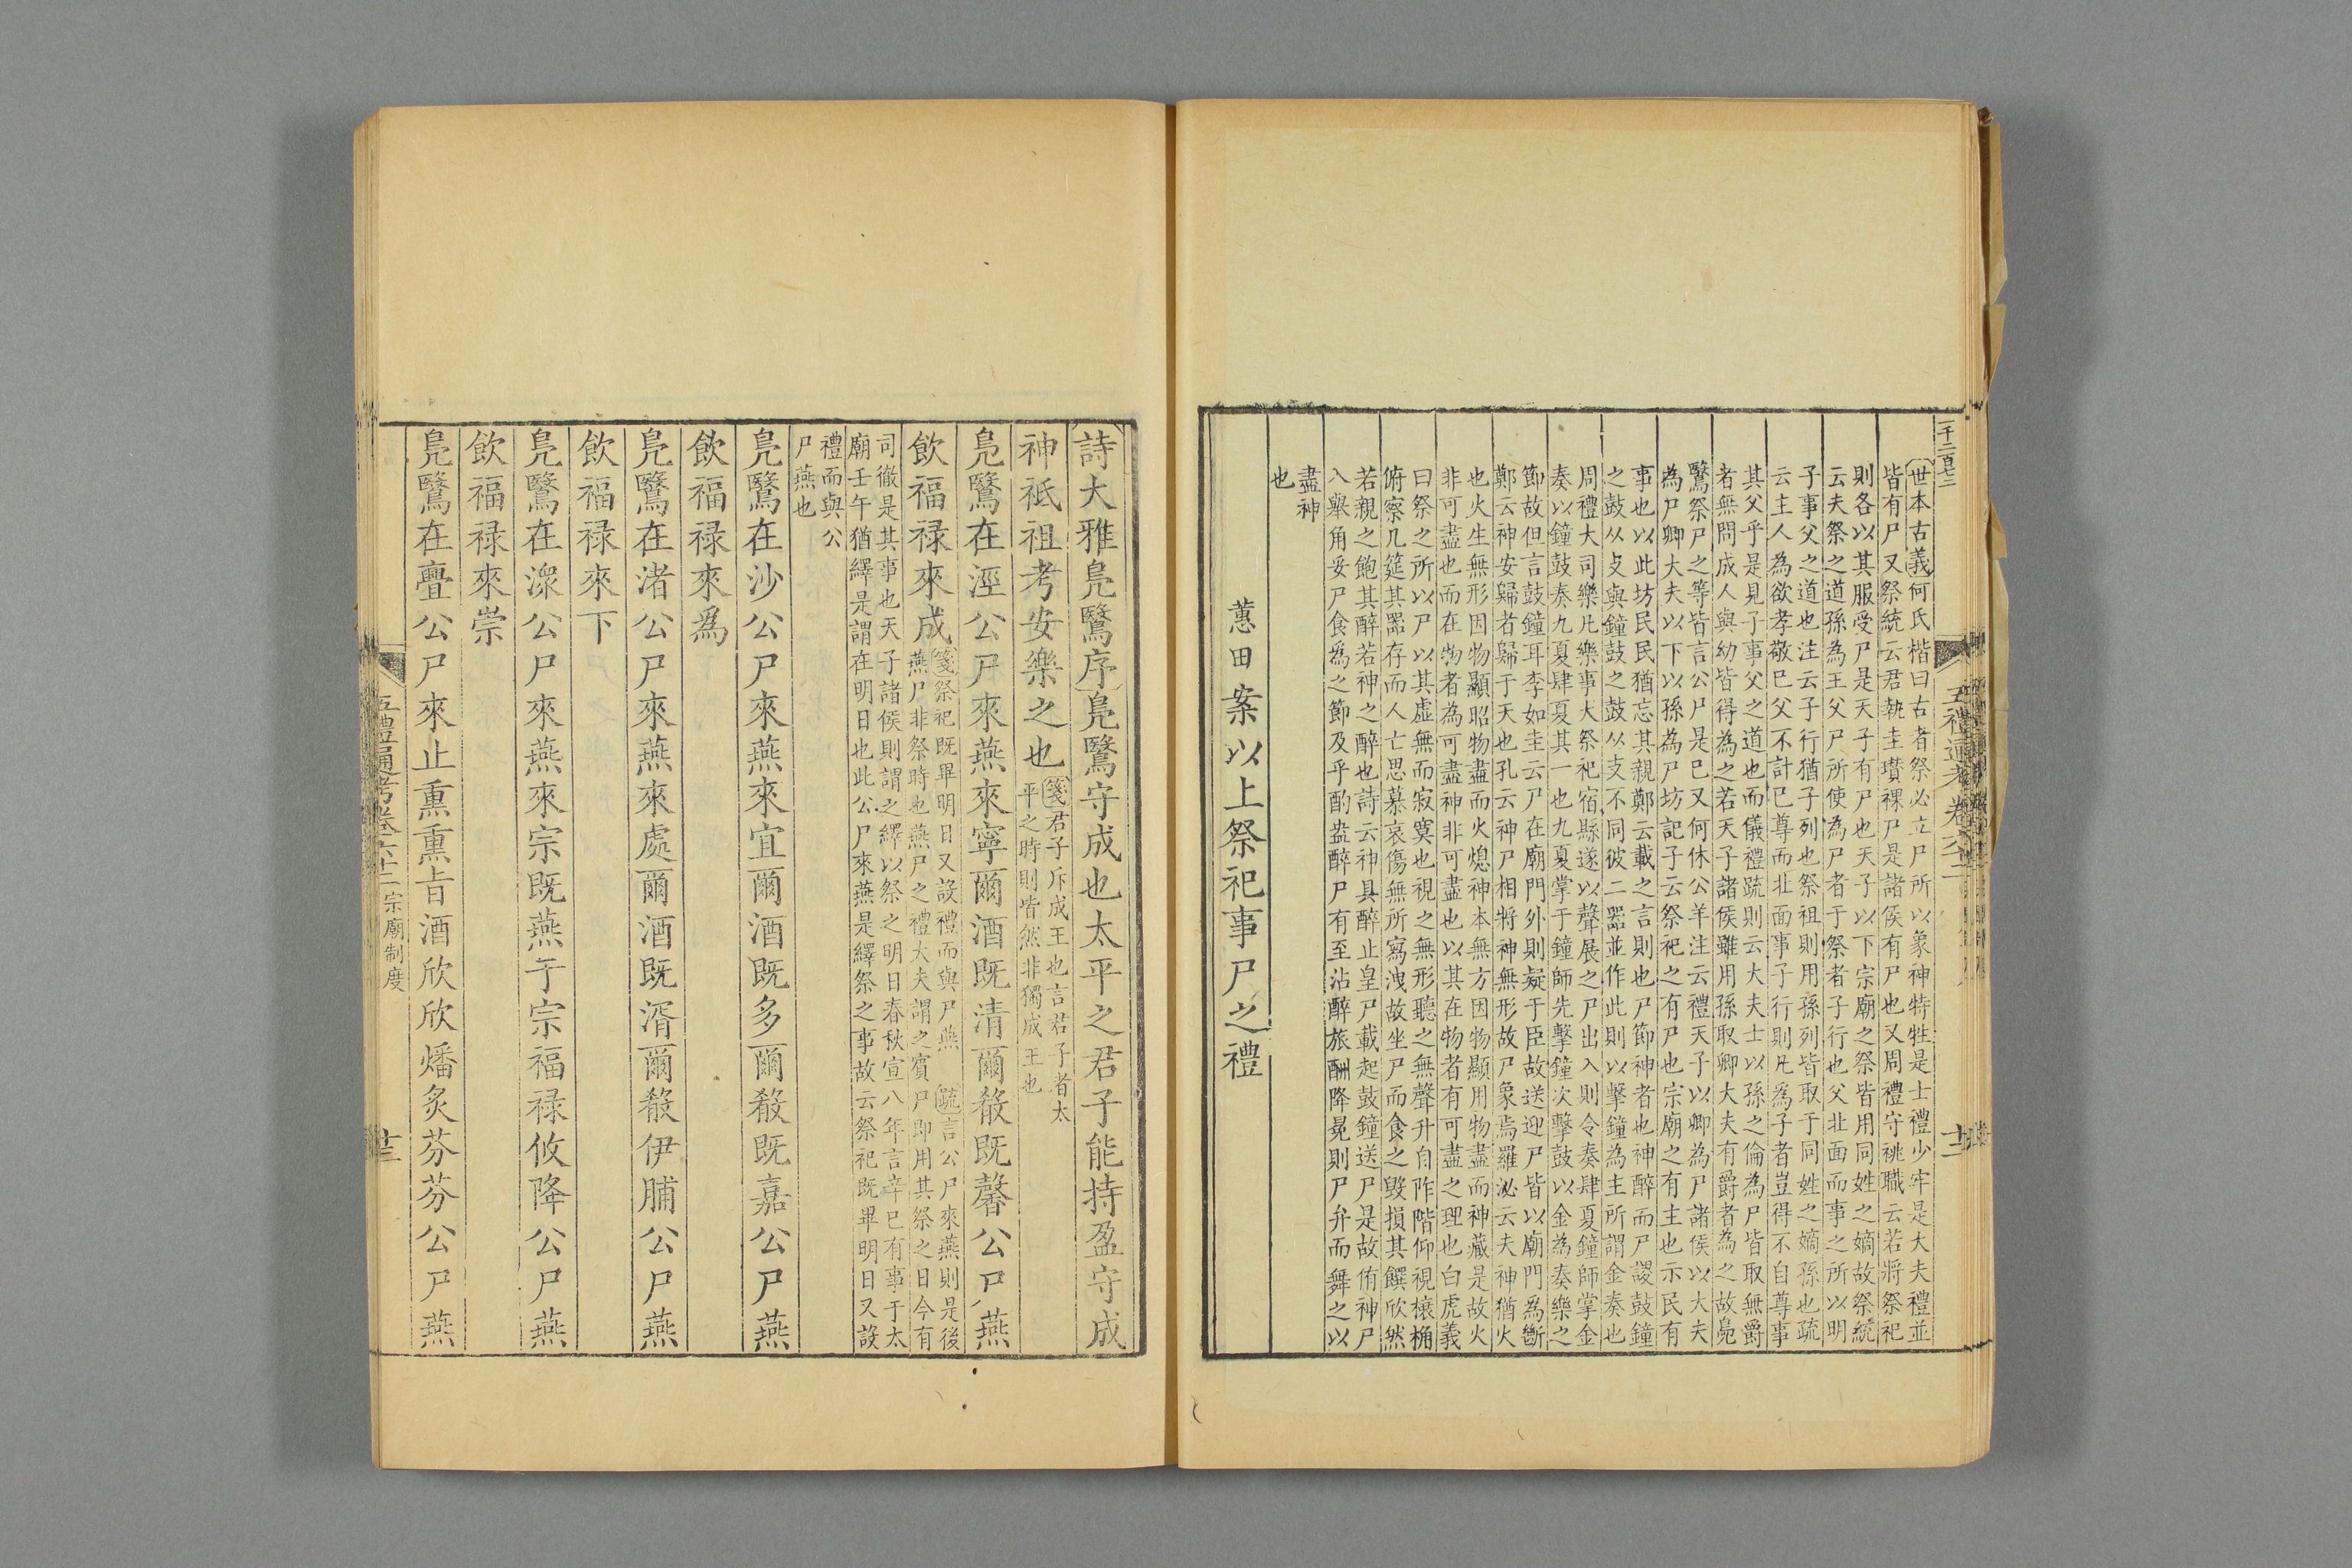 一千二百七二
世本古義何氏楷曰古者祭必立尸所以象神特牲是士禮少牢是大夫禮並
皆有尸又祭統云君執圭瓚祼尸是諸侯有尸也又周禮守祧職云若將祭祀
則各以其服受尸是天子有尸也天子以下宗廟之祭皆用同姓之嫡故祭統
云夫祭之道孫為王父尸所使為尸者于祭者子行也父北面而事之所以明
子事父之道也注云子行猶子列也祭祖則用孫列皆取于同姓之嫡孫也疏
云主人為欲孝敬已父不計已尊而北面事子行則凡為子者豈得不自尊事
其父乎是見子事父之道也而儀禮疏則云大夫士以孫之倫為尸皆取無爵
者無問成人與幼皆得為之若天子諸侯雖用孫取卿大夫有爵者為之故鳧
鷖祭尸之等皆言公尸是已又何休公羊注云禮天子以卿為尸諸侯以大夫
為尸卿大夫以下以孫為尸坊記子云祭祀之有尸也宗廟之有主也示民有
事也以此坊民民猶忘其親鄭云載之言則也尸節神者也神醉而尸謖鼓鐘
之鼓从攴與鐘鼓之鼓从支不同彼二器並作此則以擊鐘為主所謂金奏也
周禮大司樂凡樂事大祭祀宿縣遂以聲展之尸出入則令奏肆夏鐘師掌金
奏以鐘鼓奏九夏肆夏其一也九夏掌于鐘師先擊鐘次擊鼓以金為奏樂之
節故但言鼓鐘耳李如圭云尸在廟門外則疑于臣故送迎尸皆以廟門為斷
鄭云神安歸者歸于天也孔云神尸相將神無形故尸象焉羅泌云夫神猶火
也火生無形因物顯昭物盡而火熄神本無方因物顯用物盡而神藏是故火
非可盡也而在物者為可盡神非可盡也以其在物者有可盡之理也白虎義
曰祭之所以尸以其虛無而寂寞也視之無形聽之無聲升自阼階仰視榱桷
俯察几筵其器存而人亡思慕哀傷無所寫洩故坐尸而食之毀損其饌欣然
若親之飽其醉若神之醉也詩云神具醉止皇尸載起鼓鐘送尸是故侑神尸
入舉角妥尸食為之節及乎酌盎醉尸有至沾醉旅酬降冕則尸弁而舞之以
盡神
也
蕙田案以上祭祀事尸之禮
五禮通考卷六十二
詩大雅鳧鷖序鳧鷖守成也太平之君子能持盈守成
神祇祖考安樂之也箋君子斥成王也言君子者太
平之時則皆然非獨成王也
鳧鷖在涇公尸來燕來寧爾酒既清爾殽既馨公尸燕
飲福祿來成箋祭祀既畢明日又設禮而與尸燕 疏言公尸來燕則是後
燕尸非祭時也燕尸之禮大夫謂之賓尸即用其祭之日今有
司徹是其事也天子諸侯則謂之繹以祭之明日春秋宣八年言辛巳有事于太
廟壬午猶繹是謂在明日也此公尸來燕是繹祭之事故云祭祀既畢明日又設
禮而與公
尸燕也
鳧鷖在沙公尸來燕來宜爾酒既多爾殽既嘉公尸燕
飲福祿來為
鳧鷖在渚公尸來燕來處爾酒既湑爾殽伊脯公尸燕
飲福祿來下
鳧鷖在潨公尸來燕來宗既燕于宗福祿攸降公尸燕
飲福祿來崇
鳧鷖在亹公尸來止熏熏旨酒欣欣燔炙芬芬公尸燕
五禮通考卷六十二 宗廟制度